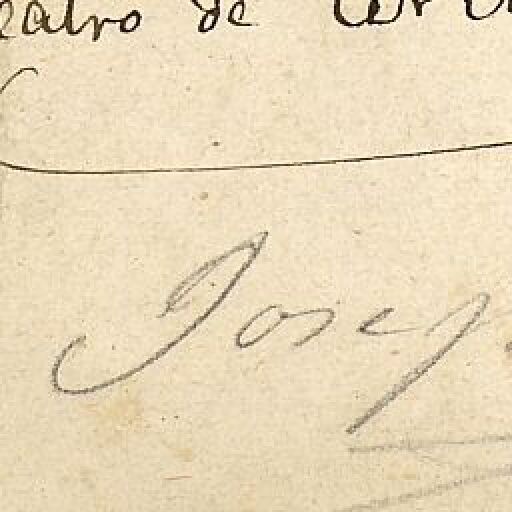 eatro de
Josep